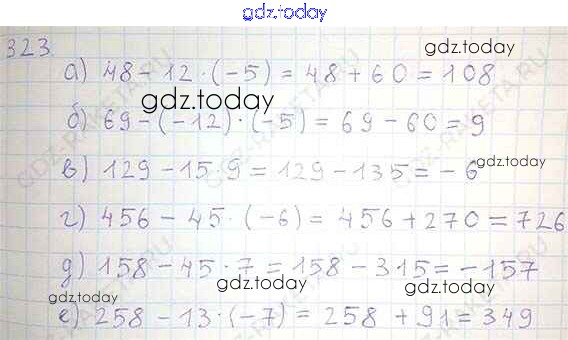 gdz.today
323.
gdz.today
а) 48 - 12 · (-5) = 48 + 60 = 108
gdz.today
б) 69 - (-12) · (-5) = 69 - 60 = 9
gdz.today
в) 129 - 15 · 9 = 129 - 135 = - 6
г) 456 - 45 · (-6) = 456 + 270 = 726
д) 158 - 45 · 7 = 158 - 315 = - 157
gdz.today
gdz.today
е) 258 - 13 · (-7) = 258 + 91 = 349
gdz.today